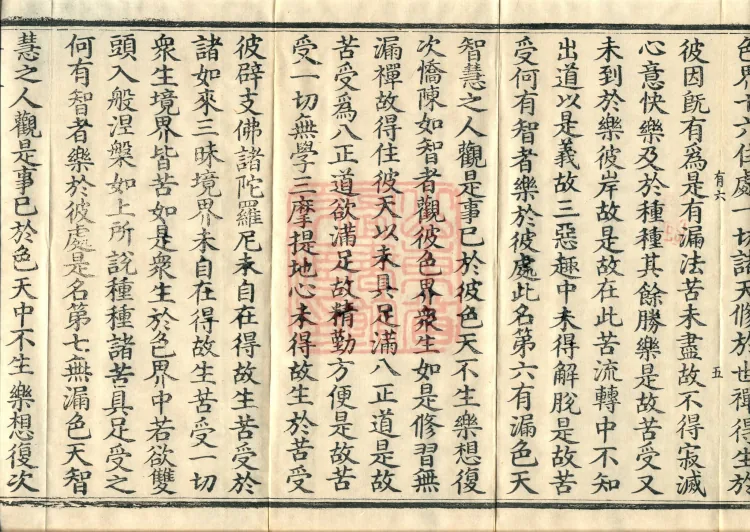 色界十六住處一切諸天修於世禪得生於
彼因既有爲是有漏法苦未盡故不得寂滅
心意快樂及於種種其餘勝樂是故苦受又
未到於樂彼岸故是故在此苦流轉中不知
出道以是義故三惡趣中未得解脫是故苦
受何有智者樂於彼處此名第六有漏色天
智慧之人觀是事已於彼色天不生樂想復
次憍陳如智者觀彼色界衆生如是修習無
漏禪故得住彼天以未具足滿八正道是故
苦受爲八正道欲滿足故精勤方便是故苦
受一切無學三摩提地心未得故生於苦受
彼辟支佛諸陀羅尼未自在得故生苦受於
諸如來三昧境界未自在得故生苦受一切
衆生境界皆苦如是衆生於色界中若欲雙
頭入般涅槃如上所說種種諸苦具足受之
何有智者樂於彼處是名第七無漏色天智
慧之人觀是事已於色天中不生樂想復次
有六
五